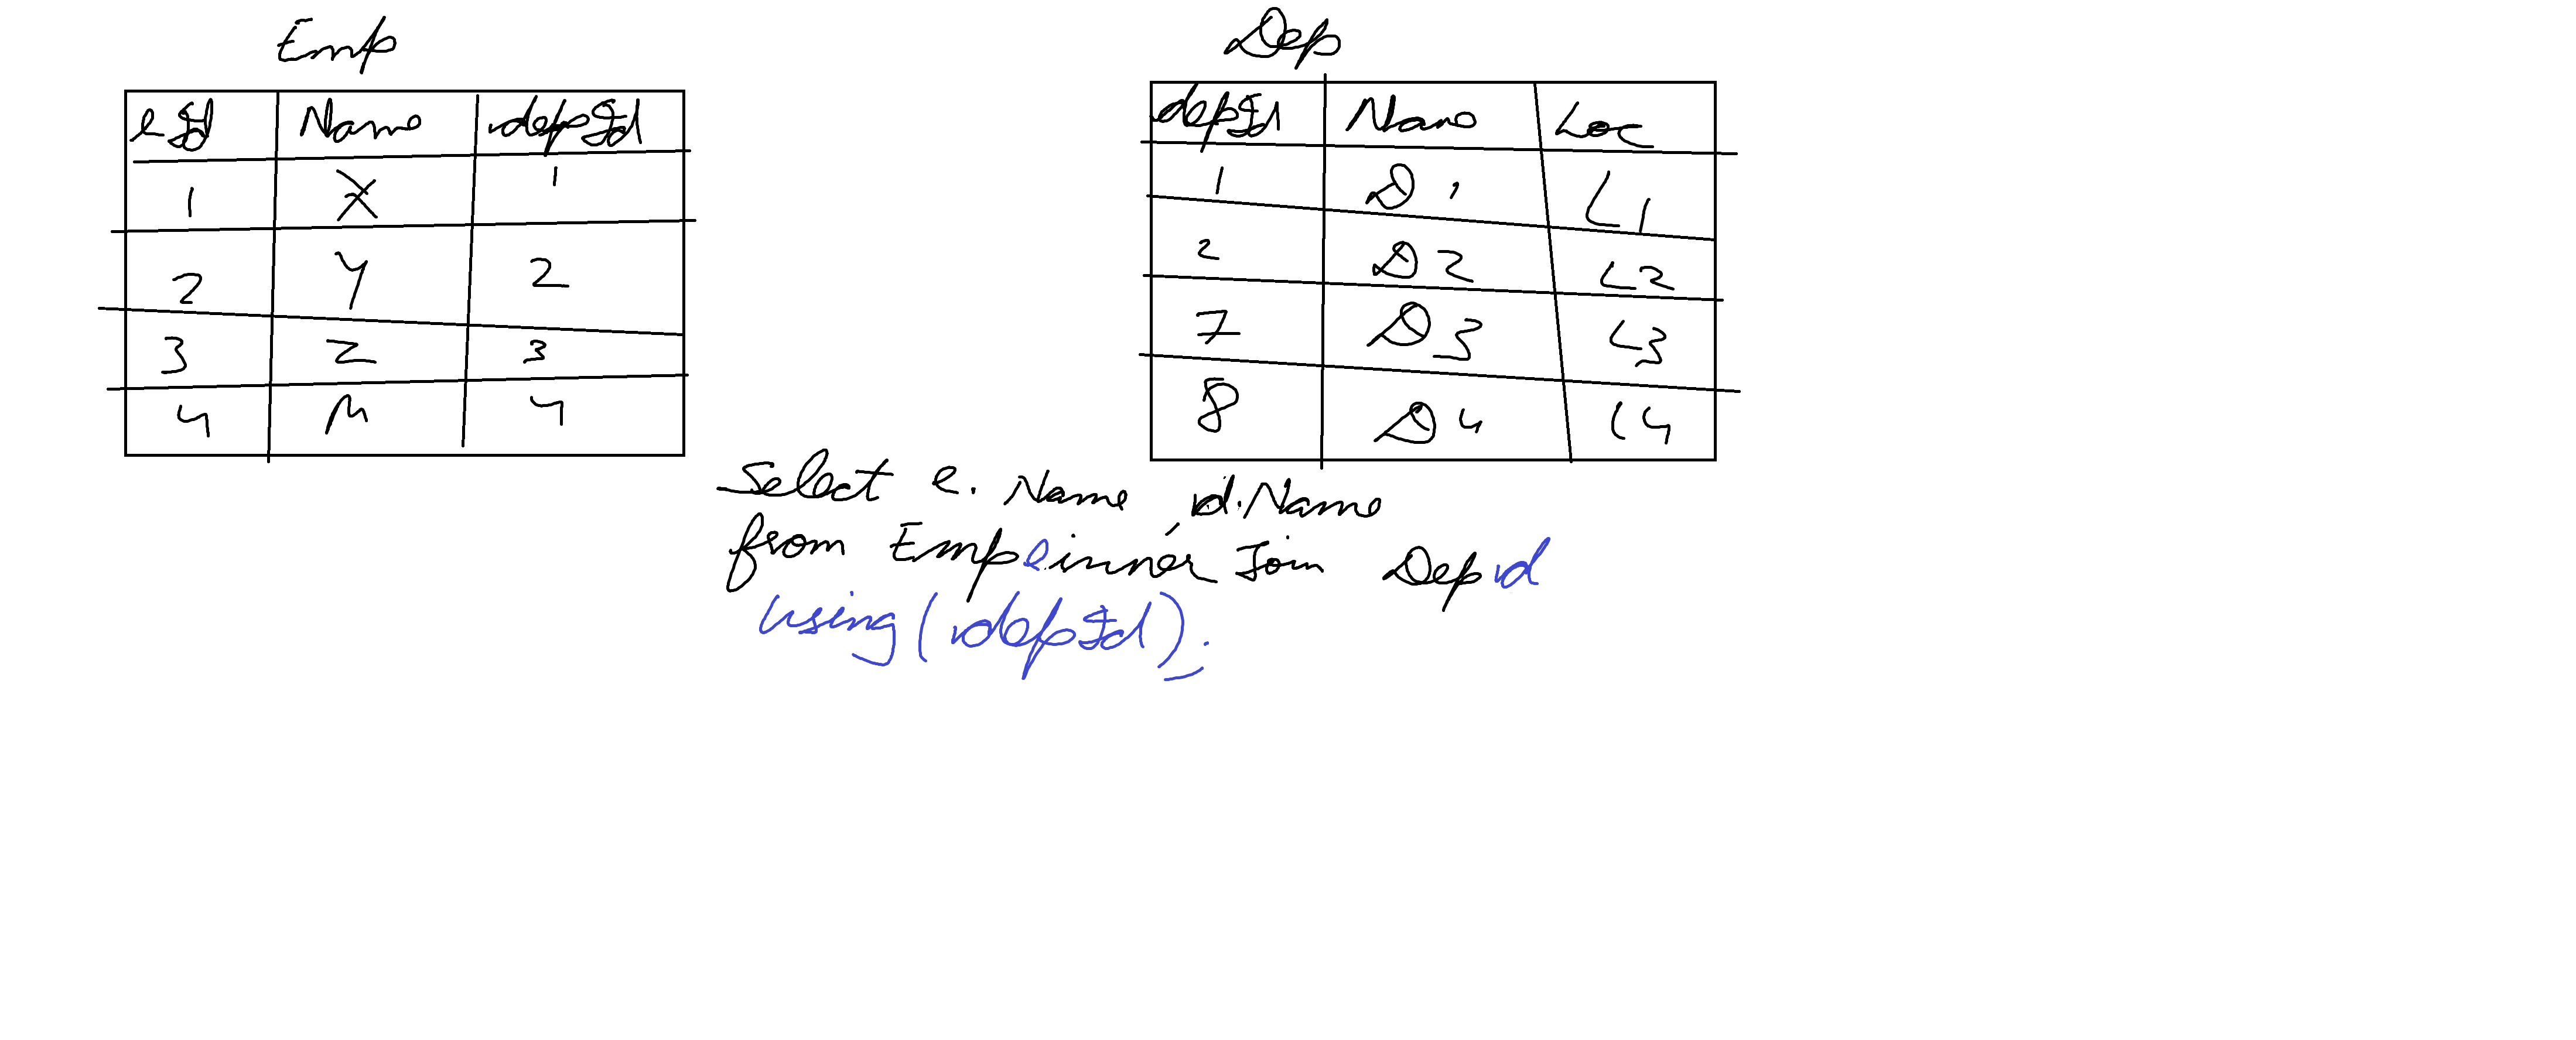 Emp
eId Name depId
1 X 1
2 Y 2
3 Z 3
4 M 4
Dep
depId Name Loc
1 D1 L1
2 D2 L2
7 D3 L3
8 D4 L4
Select e.Name, d.Name
from Emp e inner Join Dep d
using(depId);